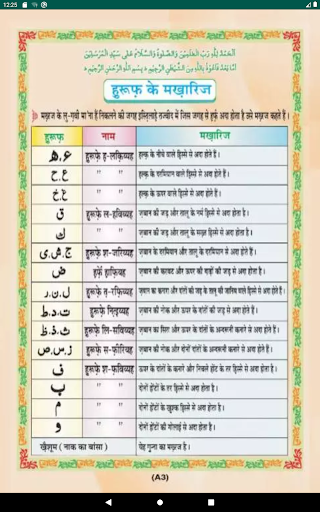 12:25
اَلْحَمْدُ لِلّٰهِ رَبِّ الْعٰلَمِيْنَ وَالصَّلٰوةُ وَالسَّلَامُ عَلٰى سَيِّدِ الْمُرْسَلِيْنَ
اَمَّا بَعْدُ فَاَعُوْذُ بِاللّٰهِ مِنَ الشَّيْطٰنِ الرَّجِيْمِ بِسْمِ اللّٰهِ الرَّحْمٰنِ الرَّحِيْمِ
हुरूफ़ के मख़ारिज
मख़्रज के लु-ग़वी मा'ना हैं निकलने की जगह इस्तिलाहे तज्वीद में जिस जगह से हर्फ़ अदा होता है उसे मख़्रज कहते हैं।
हुरूफ़ नाम मख़ारिज
ء، ھ हुरूफ़े ह-लक़िय्यह हल्क़ के नीचे वाले हिस्से से अदा होते हैं।
ع، ح " " हल्क़ के दरमियान वाले हिस्से से अदा होते हैं।
غ، خ " " हल्क़ के ऊपर वाले हिस्से से अदा होते हैं।
ق हुरूफ़े ल-हविय्यह ज़बान की जड़ और तालू के नर्म हिस्से से अदा होता है।
ك " " ज़बान की जड़ और तालू के सख़्त हिस्से से अदा होता है।
ج، ش، ى हुरूफ़े श-जरिय्यह ज़बान के दरमियान और तालू के दरमियान से अदा होते हैं।
ض हर्फ़े हाफ़िय्यह ज़बान की करवट और ऊपर की दाढ़ों की जड़ से अदा होता है।
ل، ن، ر हुरूफ़े त़-रफ़िय्यह ज़बान का कनारा और दांतों की जड़ के तालू की जानिब वाले हिस्से से अदा होते हैं।
ت، د، ط हुरूफ़े नित़्इय्यह ज़बान की नोक और ऊपर के दांतों की जड़ से अदा होते हैं।
ث، ذ، ظ हुरूफ़े लि-सविय्यह ज़बान का सिरा और ऊपर के दांतों के अन्दरूनी कनारे से अदा होते हैं।
ز، س، ص हुरूफ़े स-फ़ीरिय्यह ज़बान की नोक और दोनों दांतों के अन्दरूनी कनारे से अदा होते हैं।
ف हुरूफ़े श-फ़विय्यह ऊपर के दांतों के कनारे और निचले होंट के तर हिस्से से अदा होता है।
ب " " दोनों होंटों के तर हिस्से से अदा होता है।
م " " दोनों होंटों के ख़ुश्क हिस्से से अदा होता है।
و " " दोनों होंटों की गोलाई से अदा होता है।
ख़ैशूम ( नाक का बांसा ) येह ग़ुन्ना का मख़्रज है।
(A3)